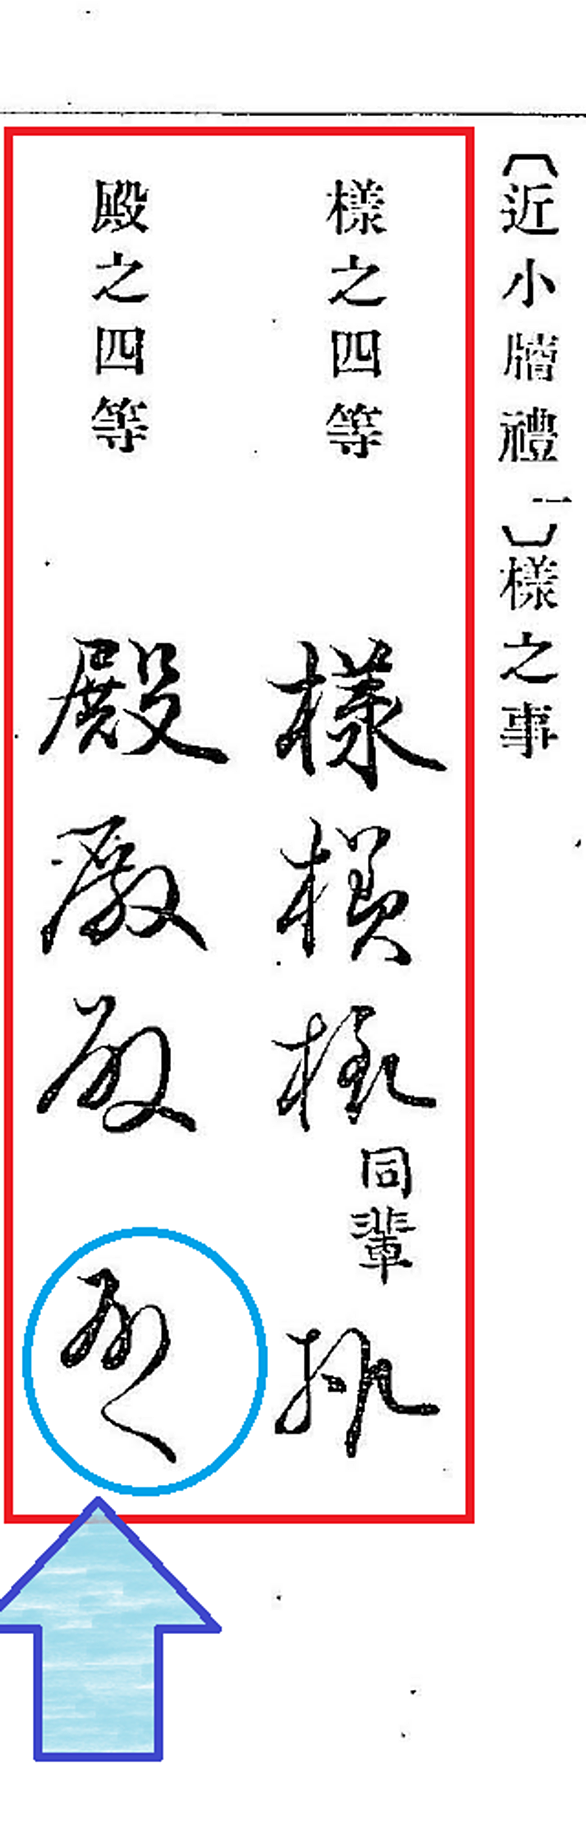 〔近小牘禮一〕樣之事
樣之四等 樣 樣 樣同輩 樣
殿之四等 殿 殿 殿 殿